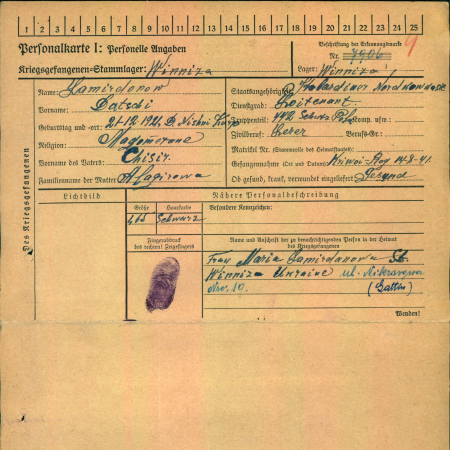 1 2 3 4 5 6 7 8 9 10 11 12 13 14 15 16 17 18 19 20 21 22 23 24 25
Personalkarte I: Personelle Angaben
Beschriftung der Erkennungsmarke
Nr. 7906
Kriegsgefangenen-Stammlager: Winniza
Lager: Winniza
Des Kriegsgefangenen
Name: Lamirdonow
Vorname:
Geburtstag und -ort: 21.12.1921
Religion:
Vorname des Vaters: Chisir.
Familienname der Mutter: Alagirowa
Staatsangehörigkeit: Kabardiner Nordkawkas
Dienstgrad: Leitenant
Truppenteil: 442 Schutz Polk Komp. usw.:
Zivilberuf: Lerer Berufs-Gr.:
Matrikel Nr. (Stammrolle des Heimatstaates)
Gefangennahme (Ort und Datum): Kriwoi-Rog 14.8-41.
Ob gesund, krank, verwundet eingeliefert: Gesund
Lichtbild
Nähere Personalbeschreibung
Größe
Haarfarbe
Besondere Kennzeichen:
1,65 Schwarz
Fingerabdruck
des rechten Zeigefingers
Name und Anschrift der zu benachrichtigenden Person in der Heimat
des Kriegsgefangenen
Frau Maria Lamirdonowa St.
Winniza Ukraine ul.
Nro. 19. (Gattin)
Wenden!